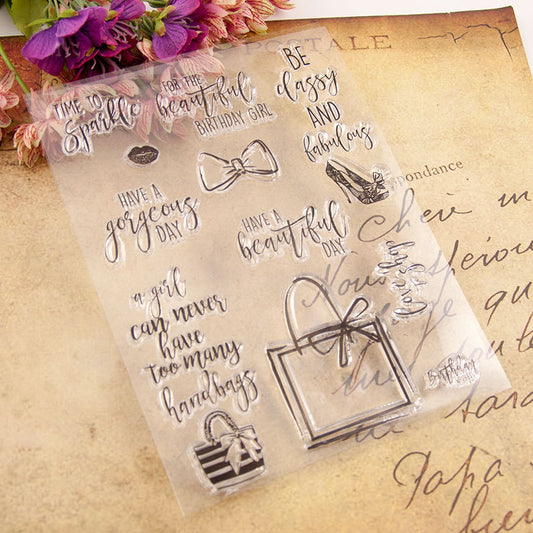 POSTALE
TIME TO
Sparkle
FOR THE
beautiful
BIRTHDAY GIRL
BE
classy
AND
fabulous
pondance
HAVE A
gorgeous
DAY
HAVE A
beautiful
DAY
Cheri
Nous
qu
a girl
can never
have
too many
handbags
Birthday
girl
Papa